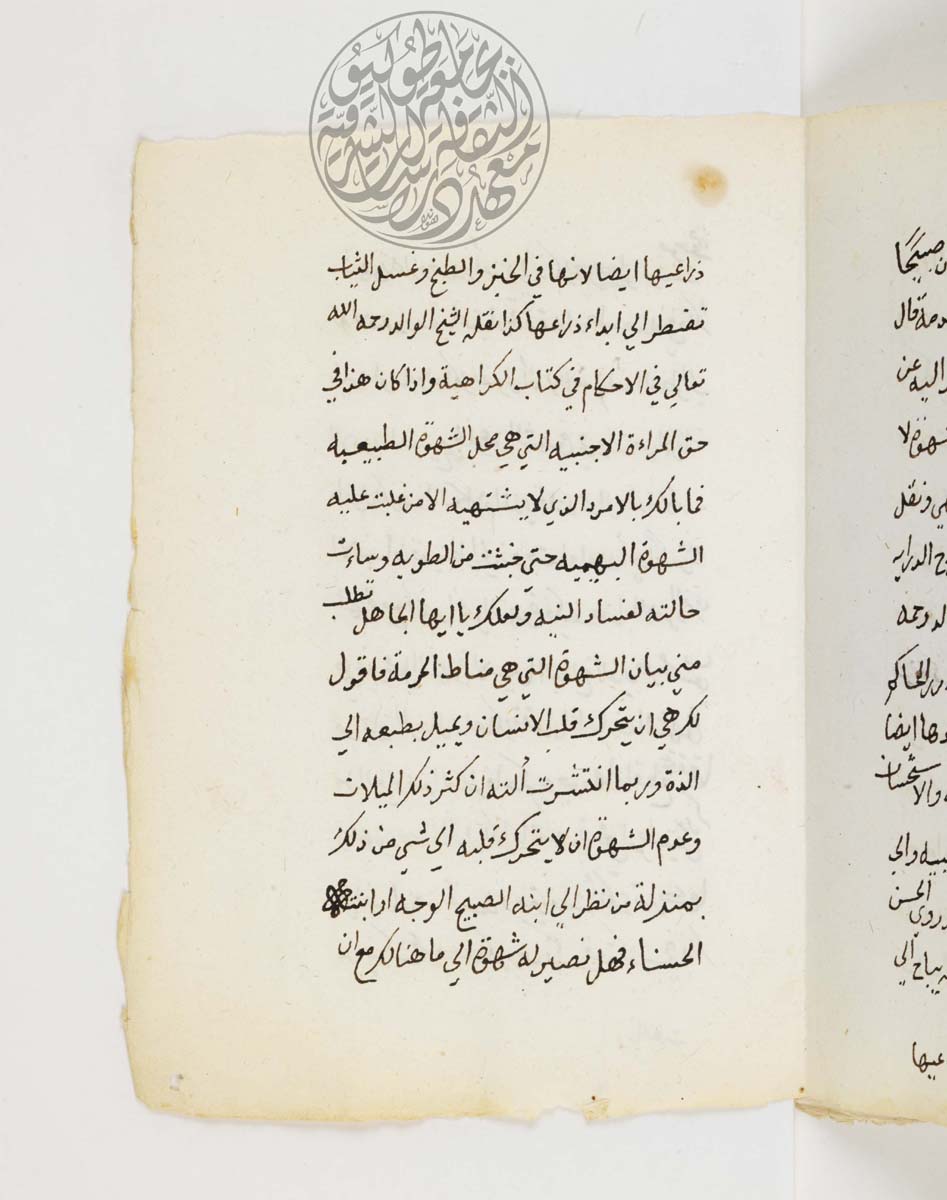 ذراعيها ايضا لانها في الخبز والطبخ وغسل الثياب
تضطر الي ابداء ذراعها كذا نقله الشيخ الوالد رحمه الله
تعالي في الاحكام في كتاب الكراهية واذا كان هذا في
حق المراءة الاجنبيه التي هي محل الشهوة الطبيعيه
فما بالك بالامرد الذي لا يشتهيه الا من غلبت عليه
الشهوة البهيميه حتي خبثت من الطويه وساءت
حالته لفساد النيه ولعلك يا ايها الجاهل تطلب
مني بيان الشهوة التي هي مناط الحرمة فاقول
لك هي ان يتحرك قلب الانسان ويميل بطبعه الي
الذة وربما انتشرت ألته ان كثر ذلك الميلان
وعدم الشهوة ان لا يتحرك قلبه الي شي من ذلك
بمنزلة من نظر الي ابنه الصبيح الوجه او ابنته
الحسناء فهل تصير له شهوة الي ما هنالك مع ان
صبيحًا
قال
اليه عن
شهوة لا
ونقل
الدرايه
رحمه
الحاكم
ايضا
والي
الحسن
روي
يباح الي
عيها
جامعة طوكيو
معهد الدراسات الثقافة الشرقية